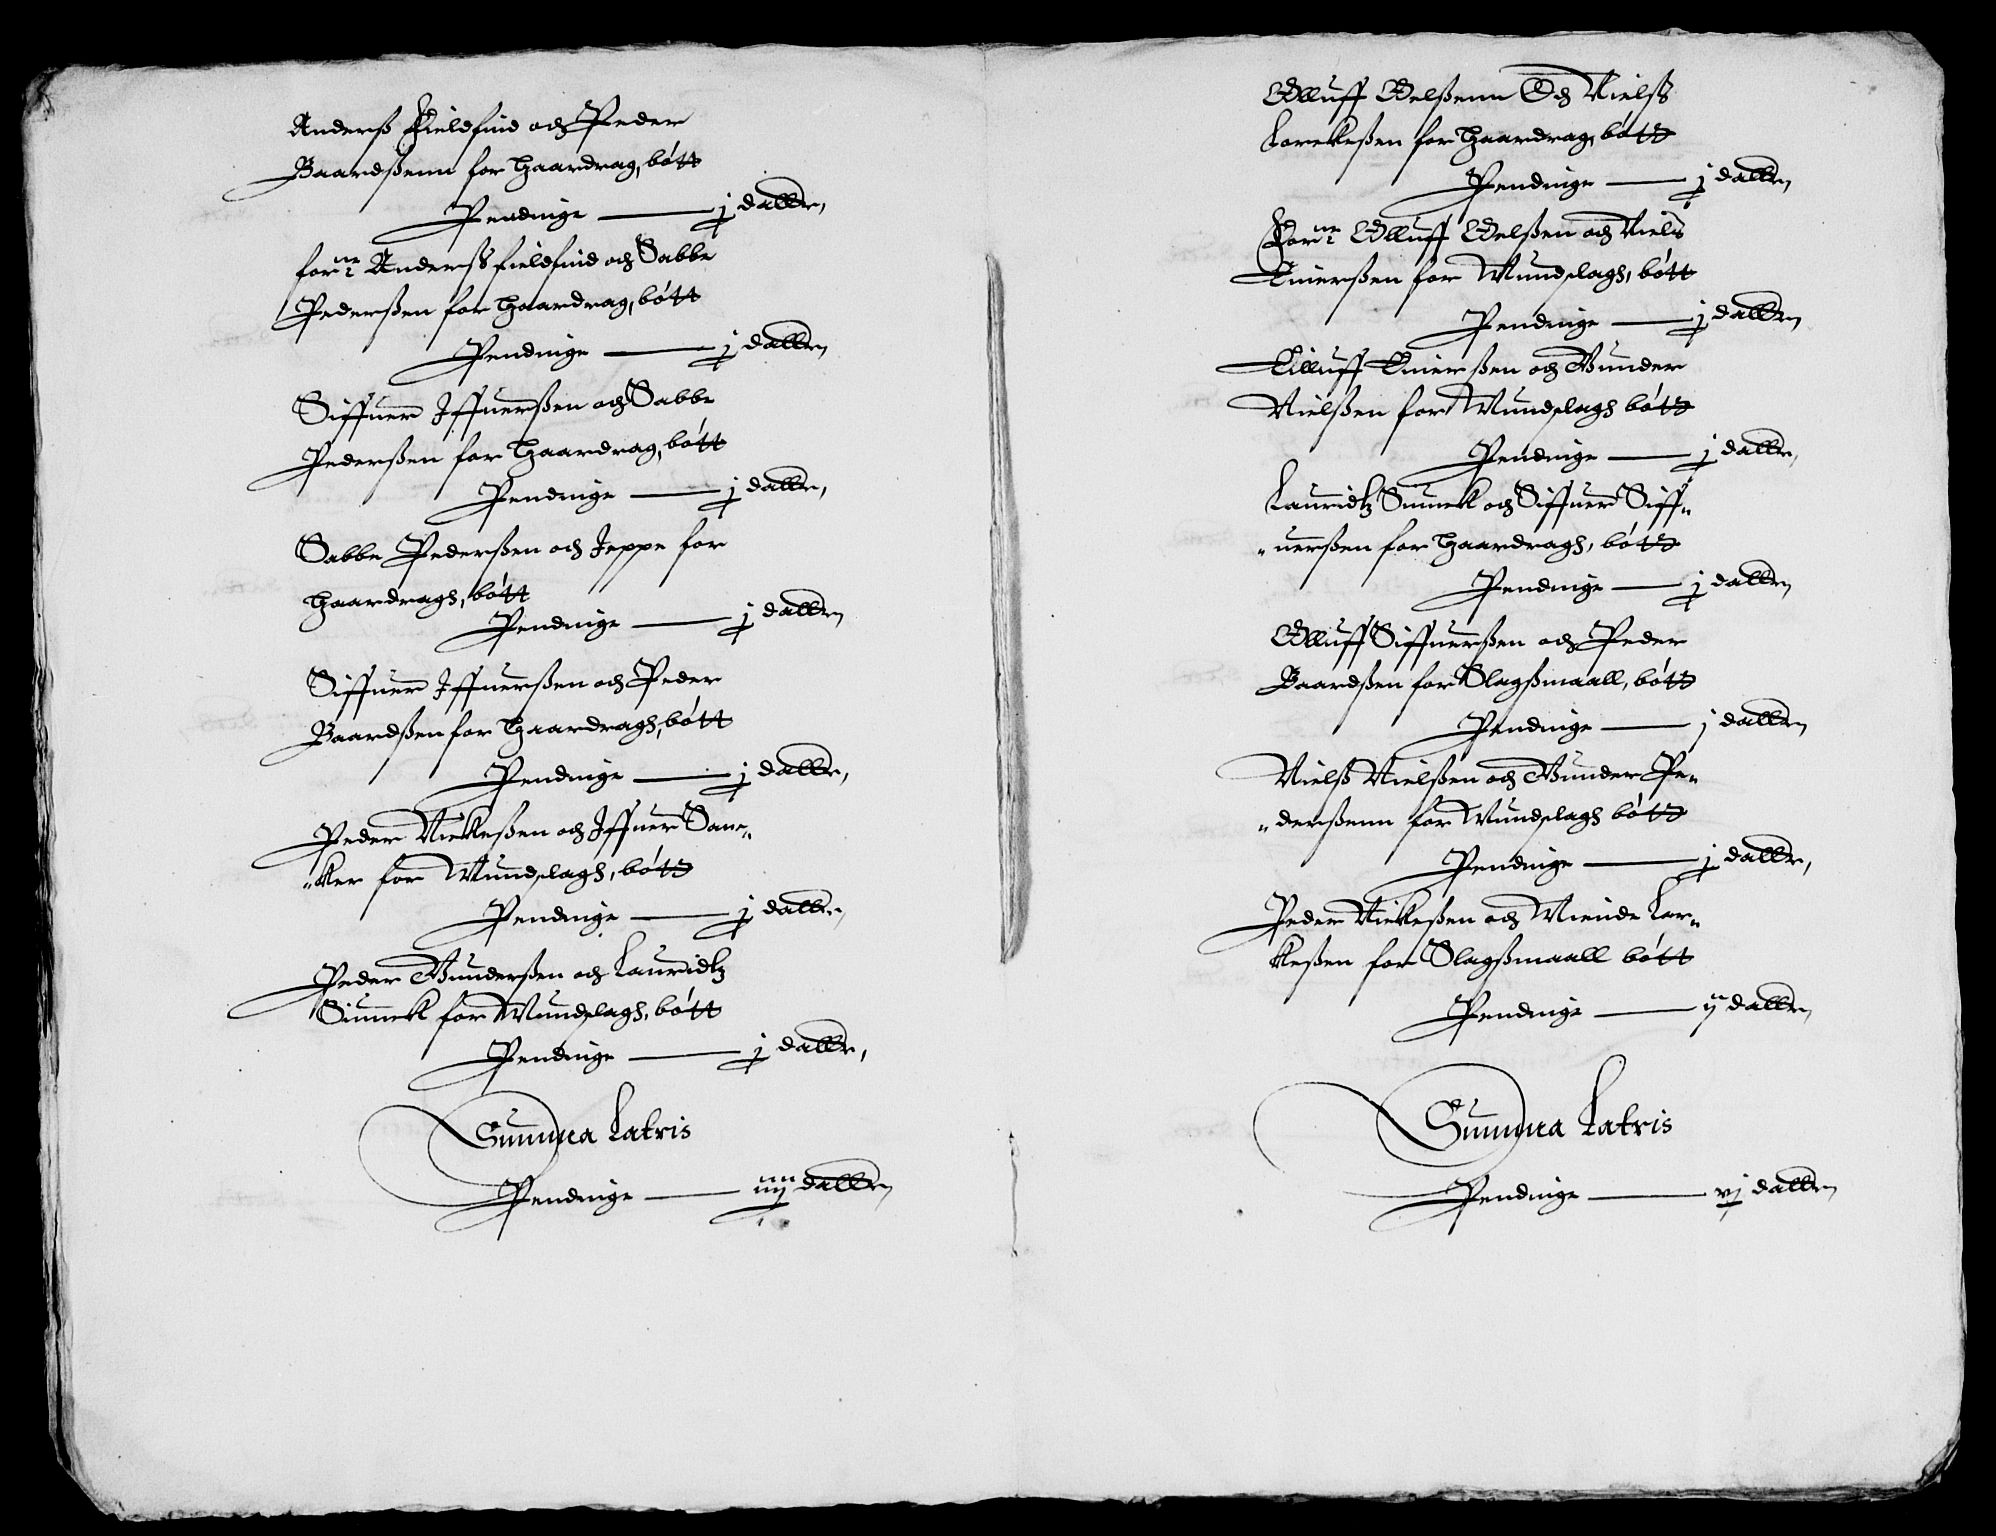 Anderß Fieldfind och Peder
Baardßenn for Haardrag, bótt
Pendinge — j daller,
forne Anderß fieldfind och Sabbe
Pederßen for haardrag, bótt
Pendinge — j daller,
Siffuer Iffuerßen och Sabbe
Pederßen for Haardrag, bótt
Pendinge — j daller,
Sabbe Pederßen och Jeppe for
Haardragh, bótt
Pendinge — j daller,
Siffuer Iffuerßen och Peder
Baardßen for Haardragh, bótt
Pendinge — j daller,
Peder Kickeßen och Iffuer San-
-ker for Mundslagh, bótt
Pendinge — j daller,
Peder Gunderßen och Lauridtz
Skinnek for Mundslagh, bótt
Pendinge — j daller,
Summa Latris
Pendinge — iiij daller,
Olluff Oelßenn Och Nielß
Lorekeßen for Haardrag, bótt
Pendinge — j daller,
Forne Olluff Oelßen och Niels
Einerßen for Mundslagh, bótt
Pendinge — j daller,
Eilluff Einerßen och Gunder
Nielßen for Mundslagh bótt
Pendinge — j daller,
Lauridtz Sunnek och Siffuer Siff-
-uerßen for Haardragh, bótt
Pendinge — j daller,
Olluff Siffuerßen och Peder
Baardßen for Slagßmaall, bótt
Pendinge — j daller,
Nielß Nielßen och Gunder Pe-
-derßenn for Mundslagh bótt
Pendinge — j daller,
Peder Kickeßen och Miende Lor-
keßen for Slagßmaall bótt
Pendinge — ij daller,
Summa Latris
Pendinge — vj daller,